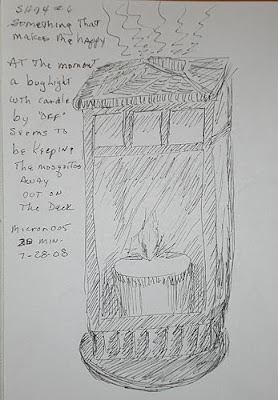 SH94 #6
Something That
makes me happy
AT the moment
a bug light
with candle
by "OFF"
Seems to
be Keeping
The mosquitos
AWAY
OUT ON
The Deck
Micron 005
20 min.
7-28-08